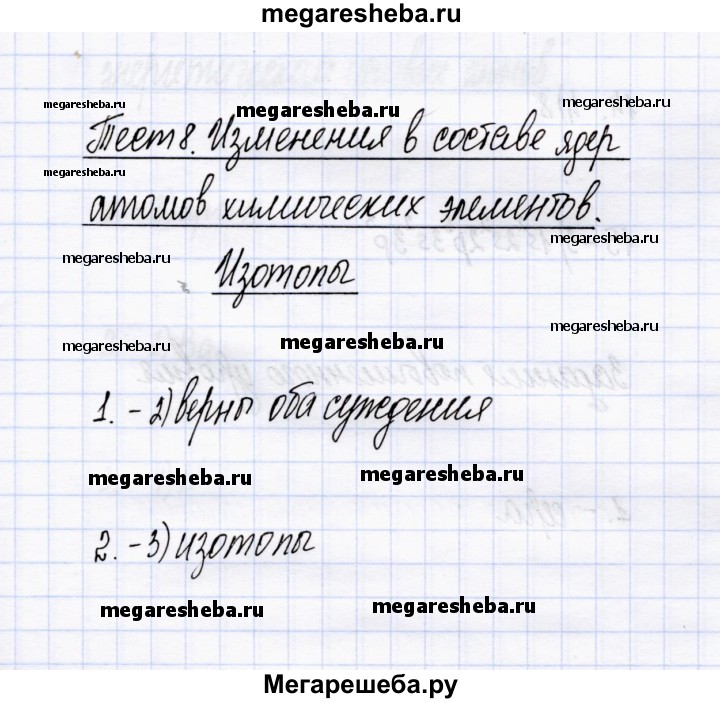 megaresheba.ru
megaresheba.ru megaresheba.ru megaresheba.ru
Тест 8. Изменения в составе ядер
megaresheba.ru
атомов химических элементов.
megaresheba.ru
megaresheba.ru
Изотопы
megaresheba.ru
megaresheba.ru megaresheba.ru
1. - 2) верны оба суждения
megaresheba.ru megaresheba.ru
2. - 3) изотопы
megaresheba.ru megaresheba.ru
Мегарешеба.ру